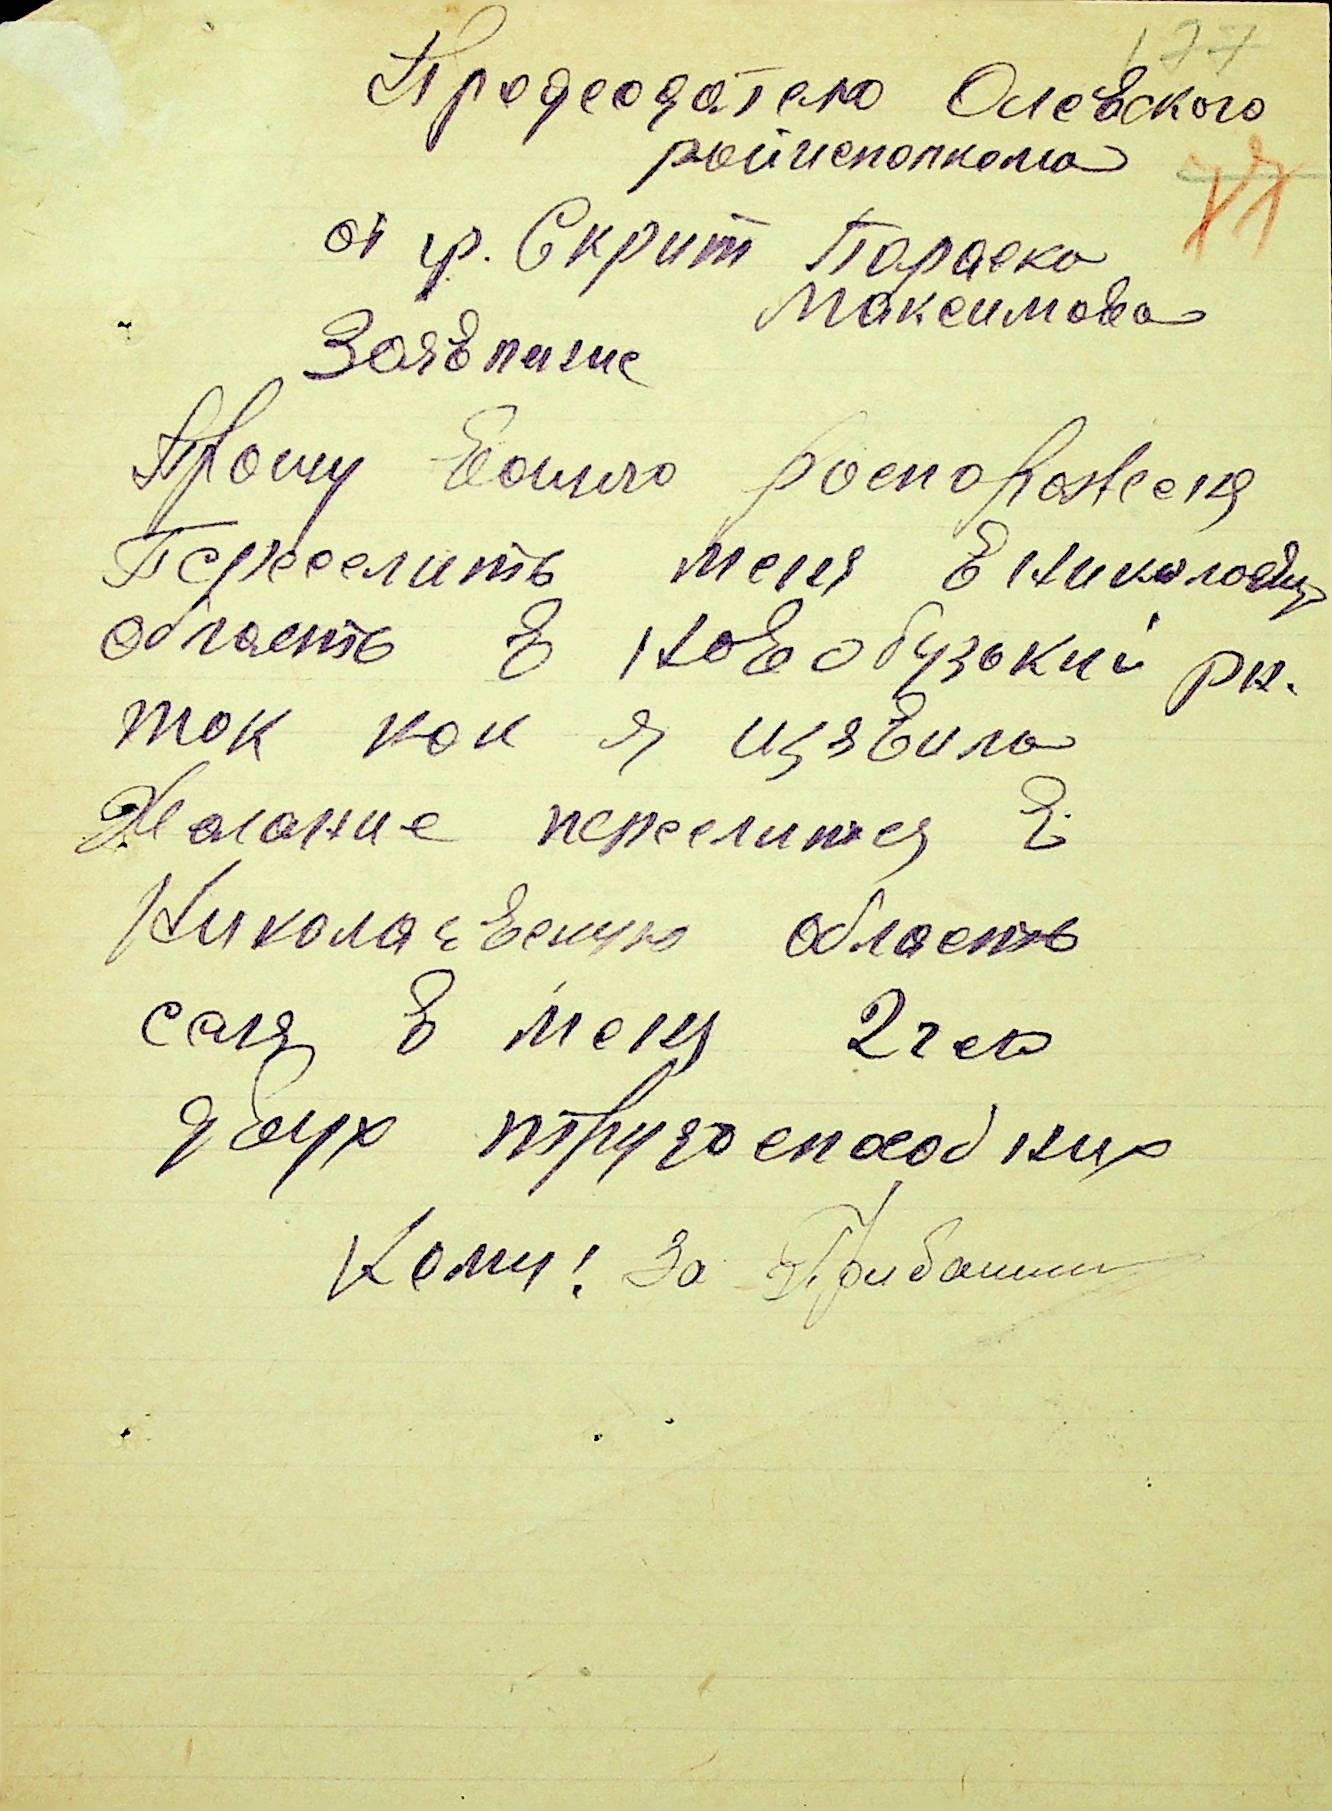 177
Председателю Олевского
райисполкома
71
от гр. Скрит Параска
Максимова
Заявление
Прошу Вашо роспоряжения
Переселить меня в Николаевщ
область в Новобузький рн.
так как я изявила
Желание переселится в
Николаевскую область
сем'я в меня 2 чел
двух трудоспособних
Кому! За